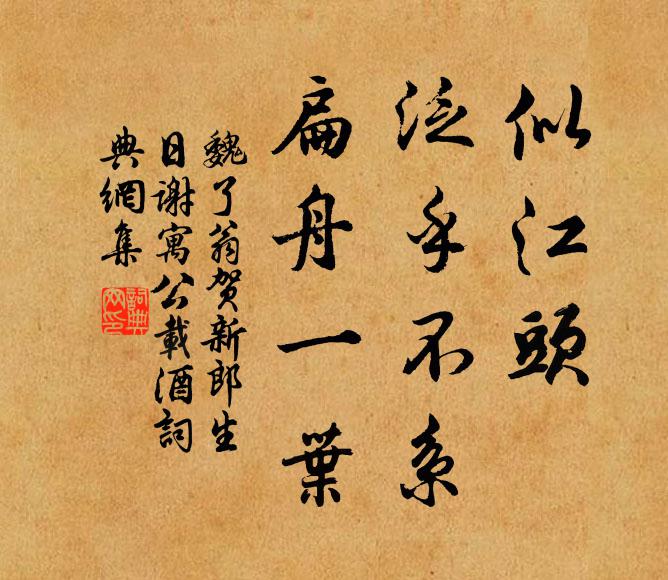 似江頭
泛乎不系
扁舟一葉
魏了翁賀新郎生
日謝寓公載酒詞
典網集
詞典
网印